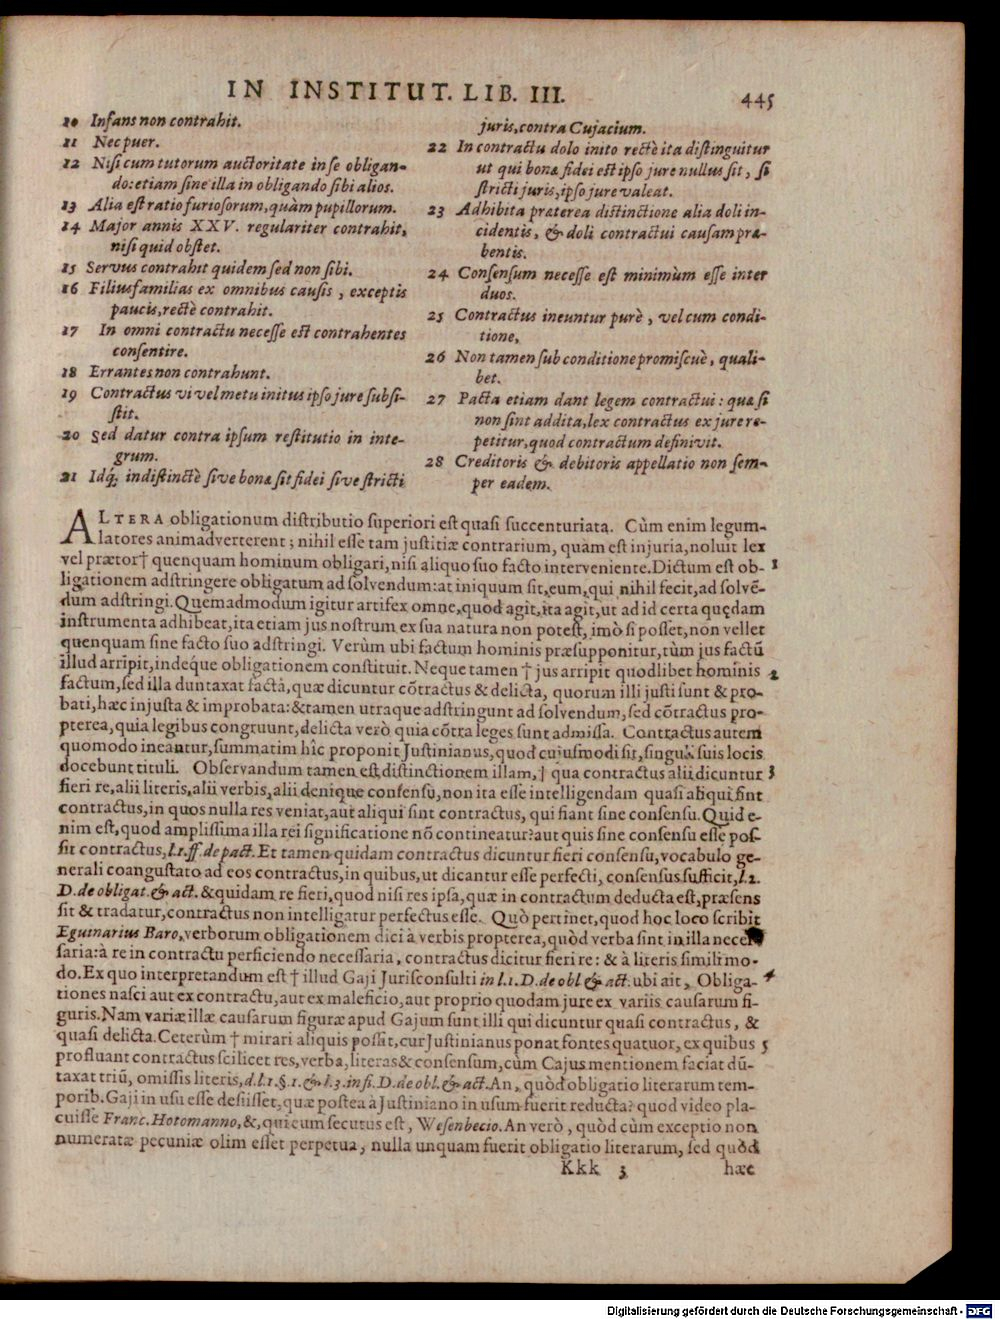 IN INSTITUT. LIB. III.
445
10 Infans non contrahit.
11 Nec puer.
12 Nisi cum tutorum auctoritate in se obligan-
do: etiam sine illa in obligando sibi alios.
13 Alia est ratio furiosorum, quàm pupillorum.
14 Major annis XXV. regulariter contrahit,
nisi quid obstet.
15 Servus contrahit quidem sed non sibi.
16 Filiusfamilias ex omnibus causis, exceptis
paucis, rectè contrahit.
17 In omni contractu necesse est contrahentes
consentire.
18 Errantes non contrahunt.
19 Contractus vi vel metu initus ipso jure subsi-
stit.
20 Sed datur contra ipsum restitutio in inte-
grum.
21 Idq́; indistinctè sive bonæ sit fidei sive stricti
juris, contra Cujacium.
22 In contractu dolo inito rectè ita distinguitur
ut qui bonæ fidei est ipso jure nullus sit, si
stricti juris, ipso jure valeat.
23 Adhibita præterea distinctione alia doli in-
cidentis, & doli contractui causam præ-
bentis.
24 Consensum necesse est minimùm esse inter
duos.
25 Contractus ineuntur purè, vel cum condi-
tione,
26 Non tamen sub conditione promiscuè, quali-
bet.
27 Pacta etiam dant legem contractui: quæ si
non sint addita, lex contractus ex jure re-
petitur, quod contractum definivit.
28 Creditoris & debitoris appellatio non sem-
per eadem.
ALTERA obligationum distributio superiori est quasi succenturiata. Cùm enim legum-
latores animadverterent; nihil esse tam justitiæ contrarium, quàm est injuria, noluit lex
vel prætor† quenquam hominum obligari, nisi aliquo suo facto interveniente. Dictum est ob- 1
ligationem adstringere obligatum ad solvendum: at iniquum sit, eum, qui nihil fecit, ad solvē-
dum adstringi. Quemadmodum igitur artifex omne, quod agit, ita agit, ut ad id certa quędam
instrumenta adhibeat, ita etiam jus nostrum ex sua natura non potest, imò si posset, non vellet
quenquam sine facto suo adstringi. Verùm ubi factum hominis præsupponitur, tùm jus factū
illud arripit, indeque obligationem constituit. Neque tamen † jus arripit quodlibet hominis 2
factum, sed illa duntaxat facta, quæ dicuntur cōtractus & delicta, quorum illi justi sunt & pro-
bati, hæc injusta & improbata: & tamen utraque adstringunt ad solvendum, sed cōtractus pro-
pterea, quia legibus congruunt, delicta verò quia cōtra leges sunt admissa. Contractus autem
quomodo ineantur, summatim hîc proponit Justinianus, quod cujusmodi sit, singuli suis locis
docebunt tituli. Observandum tamen est distinctionem illam, † qua contractus alii dicuntur 3
fieri re, alii literis, alii verbis, alii denique consensu, non ita esse intelligendam quasi aliqui sint
contractus, in quos nulla res veniat, aut aliqui sint contractus, qui fiant sine consensu. Quid e-
nim est, quod amplissima illa rei significatione nō contineatur? aut quis sine consensu esse pos-
sit contractus, l.1. ff. de pact. Et tamen quidam contractus dicuntur fieri consensu, vocabulo ge-
nerali coangustato ad eos contractus, in quibus, ut dicantur esse perfecti, consensus sufficit, l.2.
D. de obligat. & act. & quidam re fieri, quod nisi res ipsa, quæ in contractum deducta est, præsens
sit & tradatur, contractus non intelligatur perfectus esse. Quò pertinet, quod hoc loco scribit
Eguinarius Baro, verborum obligationem dici à verbis propterea, quòd verba sint in illa neces-
saria: à re in contractu perficiendo necessaria, contractus dicitur fieri re: & à literis simili mo-
do. Ex quo interpretandum est † illud Gaji Jurisconsulti in l.1. D. de obl. & act. ubi ait, Obliga- 4
tiones nasci aut ex contractu, aut ex maleficio, aut proprio quodam jure ex variis causarum fi-
guris. Nam variæ illæ causarum figuræ apud Gajum sunt illi qui dicuntur quasi contractus, &
quasi delicta. Ceterùm † mirari aliquis possit, cur Justinianus ponat fontes quatuor, ex quibus 5
profluant contractus scilicet res, verba, literas & consensum, cùm Cajus mentionem faciat dū-
taxat triū, omissis literis, d.l.1. §.1. & l.3. in fi. D. de obl. & act. An, quòd obligatio literarum tem-
porib. Gaji in usu esse desiisset, quæ postea à Justiniano in usum fuerit reducta? quod video pla-
cuisse Franc. Hotomanno, &, qui eum secutus est, Wesenbecio. An verò, quòd cùm exceptio non
numeratæ pecuniæ olim esset perpetua, nulla unquam fuerit obligatio literarum, sed quòd
Kkk 3
hæc
Digitalisierung gefördert durch die Deutsche Forschungsgemeinschaft - DFG